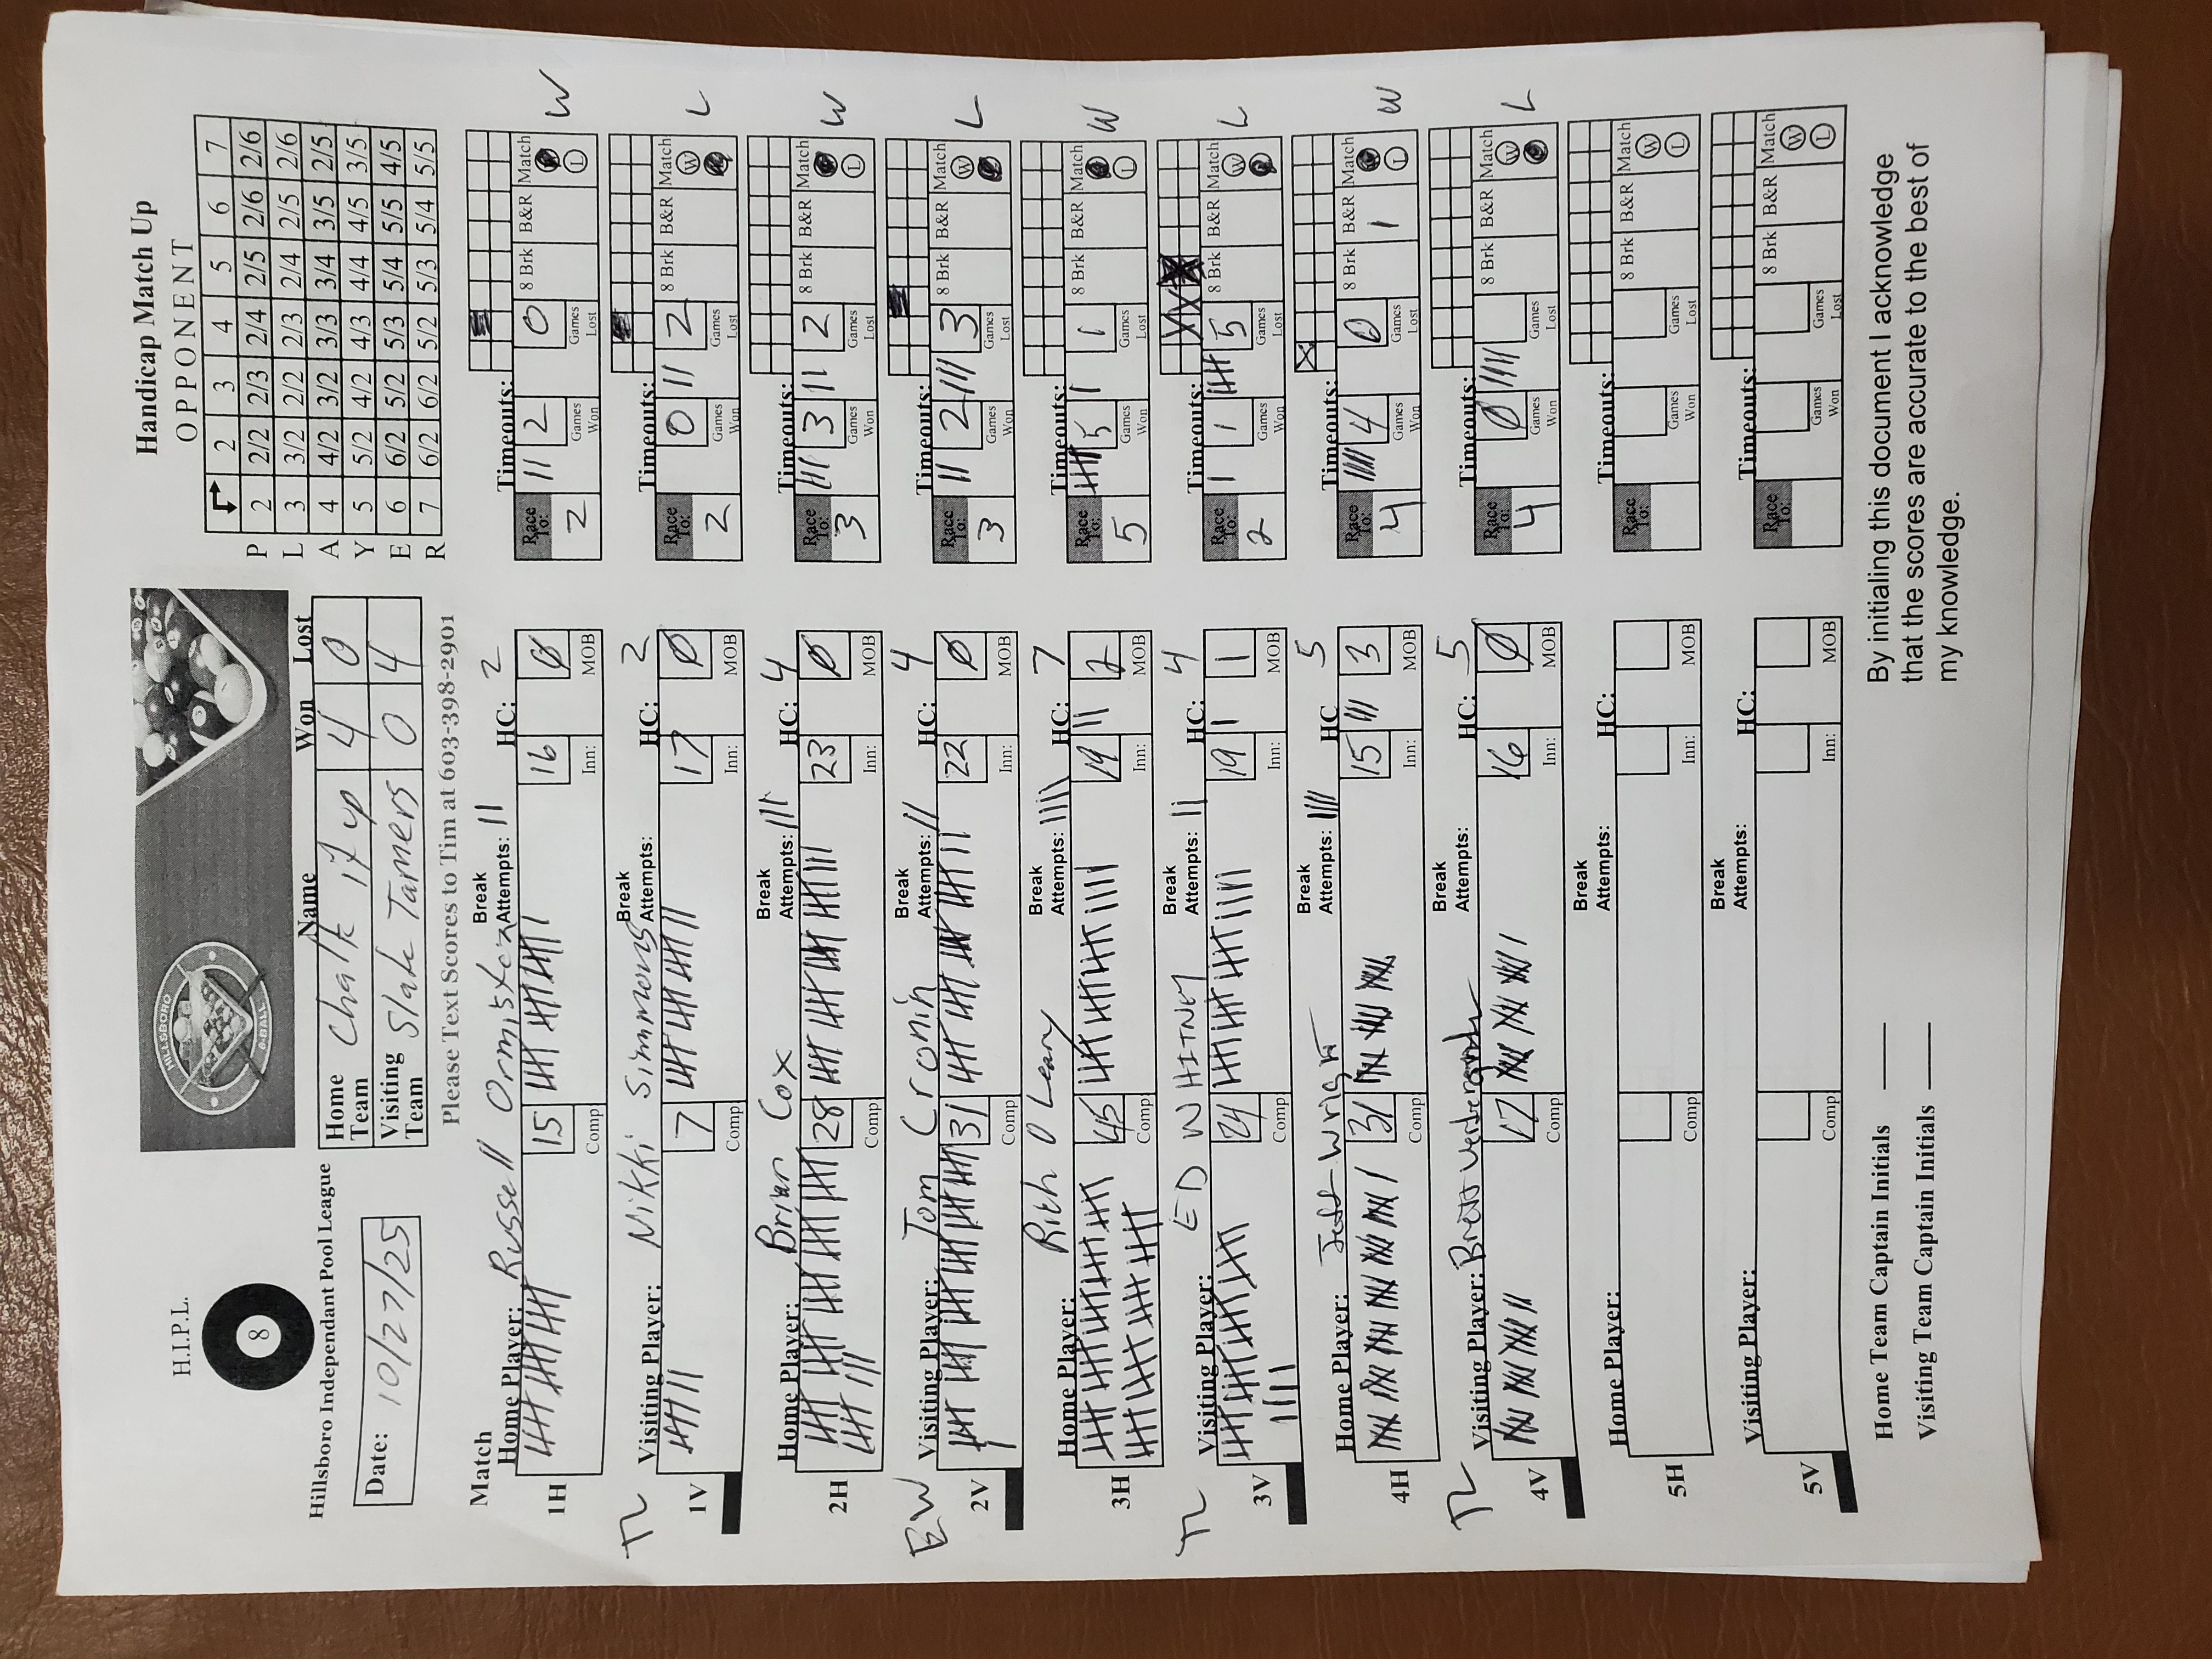 H.I.P.L.
8
Hillsboro Independant Pool League
Date: 10/27/25
HILLSBORO
8-BALL
Name Won Lost
Home Team Chalk it up 4 0
Visiting Team Slate Tamers 0 4
Please Text Scores to Tim at 603-398-2901
Handicap Match Up
OPPONENT
2 3 4 5 6 7
P 2 2/2 2/3 2/4 2/5 2/6 2/6
L 3 3/2 2/2 2/3 2/4 2/5 2/6
A 4 4/2 3/2 3/3 3/4 3/5 2/5
Y 5 5/2 4/2 4/3 4/4 4/5 3/5
E 6 6/2 5/2 5/3 5/4 5/5 4/5
R 7 6/2 6/2 5/2 5/3 5/4 5/5
Match
Home Player: Russell Ormiston Break Attempts: II HC: 2 Timeouts:
1H 15 Comp 16 Inn: 0 MOB Race To: 2 II 2 Games Won 0 Games Lost 8 Brk B&R Match W L W
TL Visiting Player: Nikki Simmons Break Attempts: HC: 2 Timeouts:
1V 7 Comp 17 Inn: 0 MOB Race To: 2 0 Games Won II 2 Games Lost 8 Brk B&R Match W L
Home Player: Brian Cox Break Attempts: III HC: 4 Timeouts:
2H 28 Comp 23 Inn: 0 MOB Race To: 3 III 3 Games Won II 2 Games Lost 8 Brk B&R Match L W
EW Visiting Player: Tom Cronin Break Attempts: II HC: 4 Timeouts:
2V 31 Comp 22 Inn: 0 MOB Race To: 3 II 2 Games Won III 3 Games Lost 8 Brk B&R Match W L
Home Player: Rich O Leary Break Attempts: IIII HC: 7 Timeouts:
3H 45 Comp 19 Inn: III 2 MOB Race To: 5 5 Games Won I 1 Games Lost 8 Brk B&R Match L W
TL Visiting Player: ED WHITNEY Break Attempts: II HC: 4 Timeouts:
3V 24 Comp 19 Inn: I 1 MOB Race To: 2 I 1 Games Won 5 Games Lost 8 Brk B&R Match W L
Home Player: Wright Break Attempts: IIII HC 5 Timeouts:
4H 31 Comp 15 Inn: III 3 MOB Race To: 4 IIII 4 Games Won 0 Games Lost 8 Brk B&R 1 Match L W
TL Visiting Player: Brett Break Attempts: HC: 5 Timeouts:
4V 17 Comp 16 Inn: 0 MOB Race To: 4 0 Games Won IIII Games Lost 8 Brk B&R Match W L
Home Player: Break Attempts: HC: Timeouts:
5H Comp Inn: MOB Race To: Games Won Games Lost 8 Brk B&R Match W L
Visiting Player: Break Attempts: HC: Timeouts:
5V Comp Inn: MOB Race To: Games Won Games Lost 8 Brk B&R Match W L
Home Team Captain Initials
Visiting Team Captain Initials
By initialing this document I acknowledge
that the scores are accurate to the best of
my knowledge.